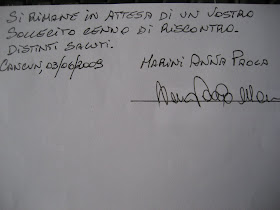 SI RIMANE IN ATTESA DI UN VOSTRO
SOLLECITO CENNO DI RISCONTRO.
DISTINTI SALUTI.
CANCUN, 03/06/2008 MARINI ANNA PAOLA